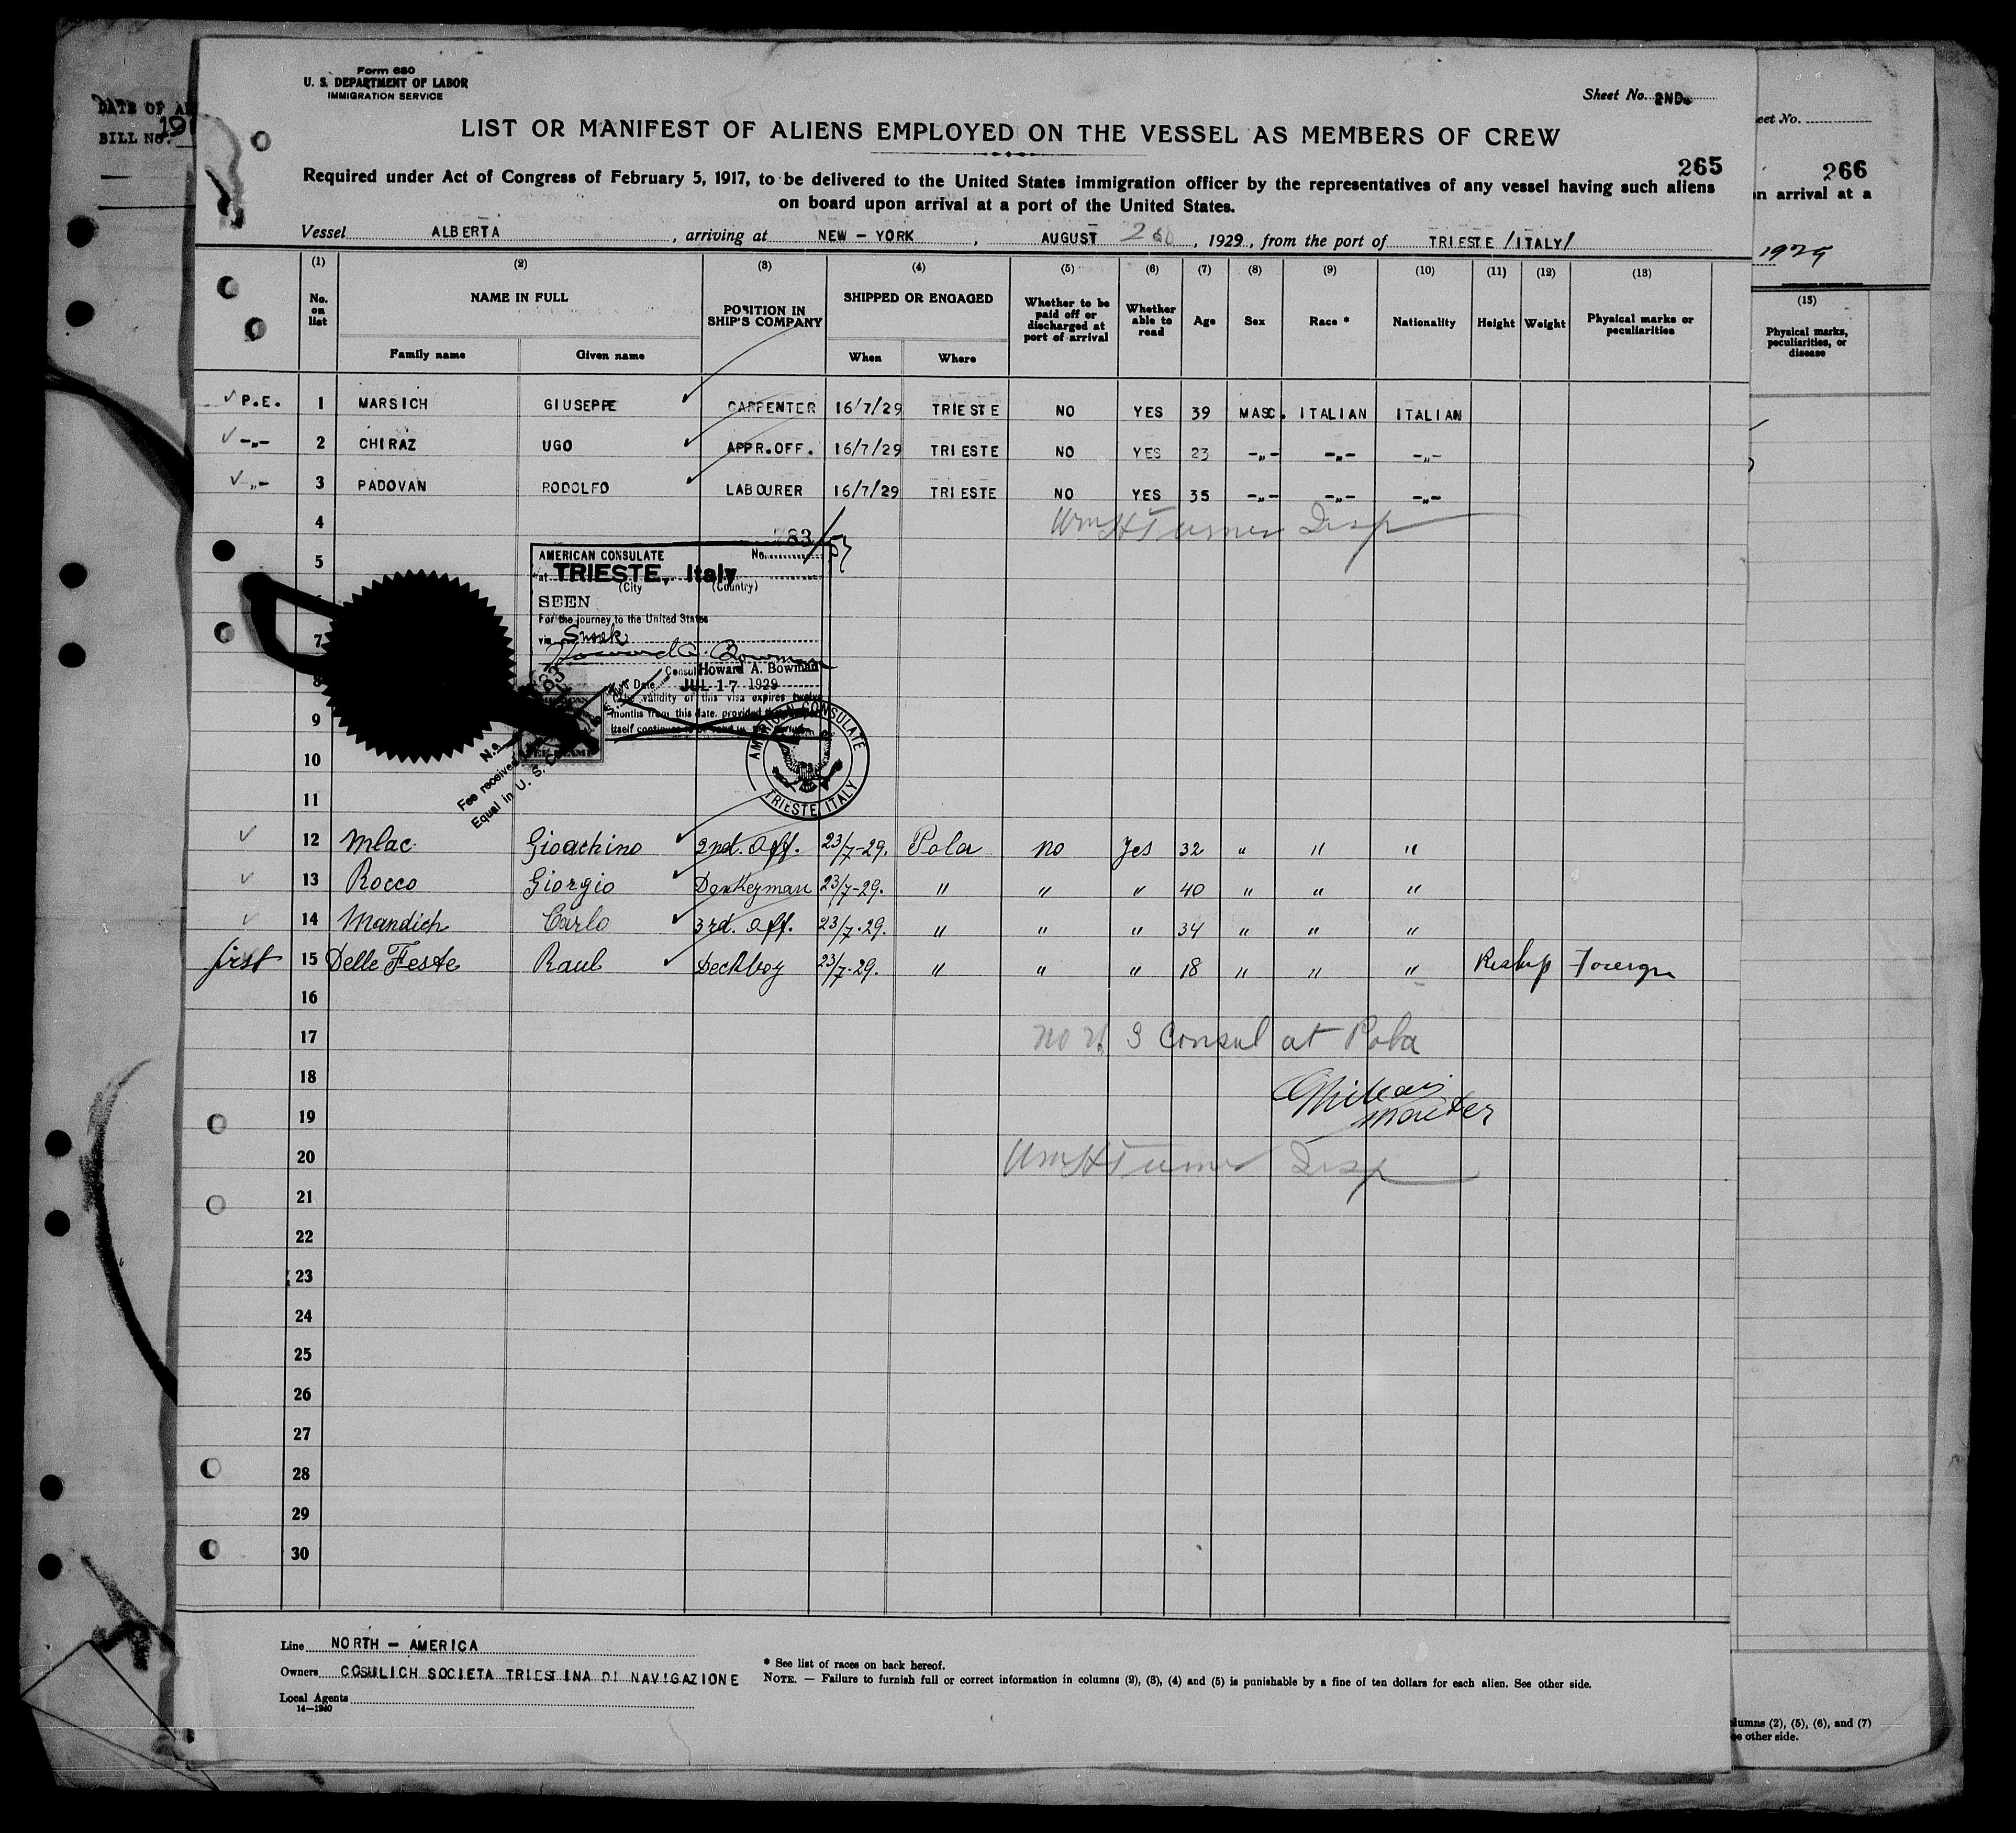 Form 680
U. S. DEPARTMENT OF LABOR
IMMIGRATION SERVICE
Sheet No. 2ND.
LIST OR MANIFEST OF ALIENS EMPLOYED ON THE VESSEL AS MEMBERS OF CREW
265
Required under Act of Congress of February 5, 1917, to be delivered to the United States immigration officer by the representatives of any vessel having such aliens
on board upon arrival at a port of the United States.
Vessel ALBERTA , arriving at NEW - YORK , AUGUST , 1929 , from the port of TRIESTE /ITALY/
(1) (2) (3) (4) (5) (6) (7) (8) (9) (10) (11) (12) (13)
No. on list NAME IN FULL Family name Given name POSITION IN SHIP'S COMPANY SHIPPED OR ENGAGED When Where Whether to be paid off or discharged at port of arrival Whether able to read Age Sex Race * Nationality Height Weight Physical marks or peculiarities
P.E. 1 MARSICH GIUSEPPE CARPENTER 16/7/29 TRIESTE NO YES 39 MASC. ITALIAN ITALIAN
-„- 2 CHIRAZ UGO APPR.OFF. 16/7/29 TRIESTE NO YES 23 -„- -„- -„-
-„- 3 PADOVAN RODOLFO LABOURER 16/7/29 TRIESTE NO YES 35 -„- -„- -„-
4 Wm H Turner Insp
5
7
9
10
11
AMERICAN CONSULATE No. 783/
at TRIESTE, Italy
(City (Country)
SEEN
For the journey to the United States
via
Howard A. Bowman
Consul Howard A. Bowman
Date JUL 17 1929
The validity of this visa expires twelve
months from this date, provided the
itself continues to be
No.
Fee received
Equal in U. S.
AMERICAN CONSULATE
TRIESTE ITALY
12 Mlac Gioachino 2nd. Off. 23/7-29. Pola no Yes 32 " " "
13 Rocco Giorgio Donkeyman 23/7-29. " " " 40 " " "
14 Mandich Carlo 3rd. Off. 23/7-29. " " " 34 " " "
first 15 Delle Feste Raul Deckboy 23/7-29. " " " 18 " " " Reship Foreign
16
17 no U S Consul at Pola
18
19 Master
20 Wm H Turner Insp
21
22
23
24
25
26
27
28
29
30
Line NORTH - AMERICA
Owners COSULICH SOCIETA TRIESTINA DI NAVIGAZIONE
Local Agents
14-1240
* See list of races on back hereof.
NOTE. — Failure to furnish full or correct information in columns (2), (3), (4) and (5) is punishable by a fine of ten dollars for each alien. See other side.
DATE OF
BILL No.
eet No.
266
on arrival at a
1929
(15)
Physical marks, peculiarities, or disease
lumns (2), (5), (6), and (7)
ee other side.